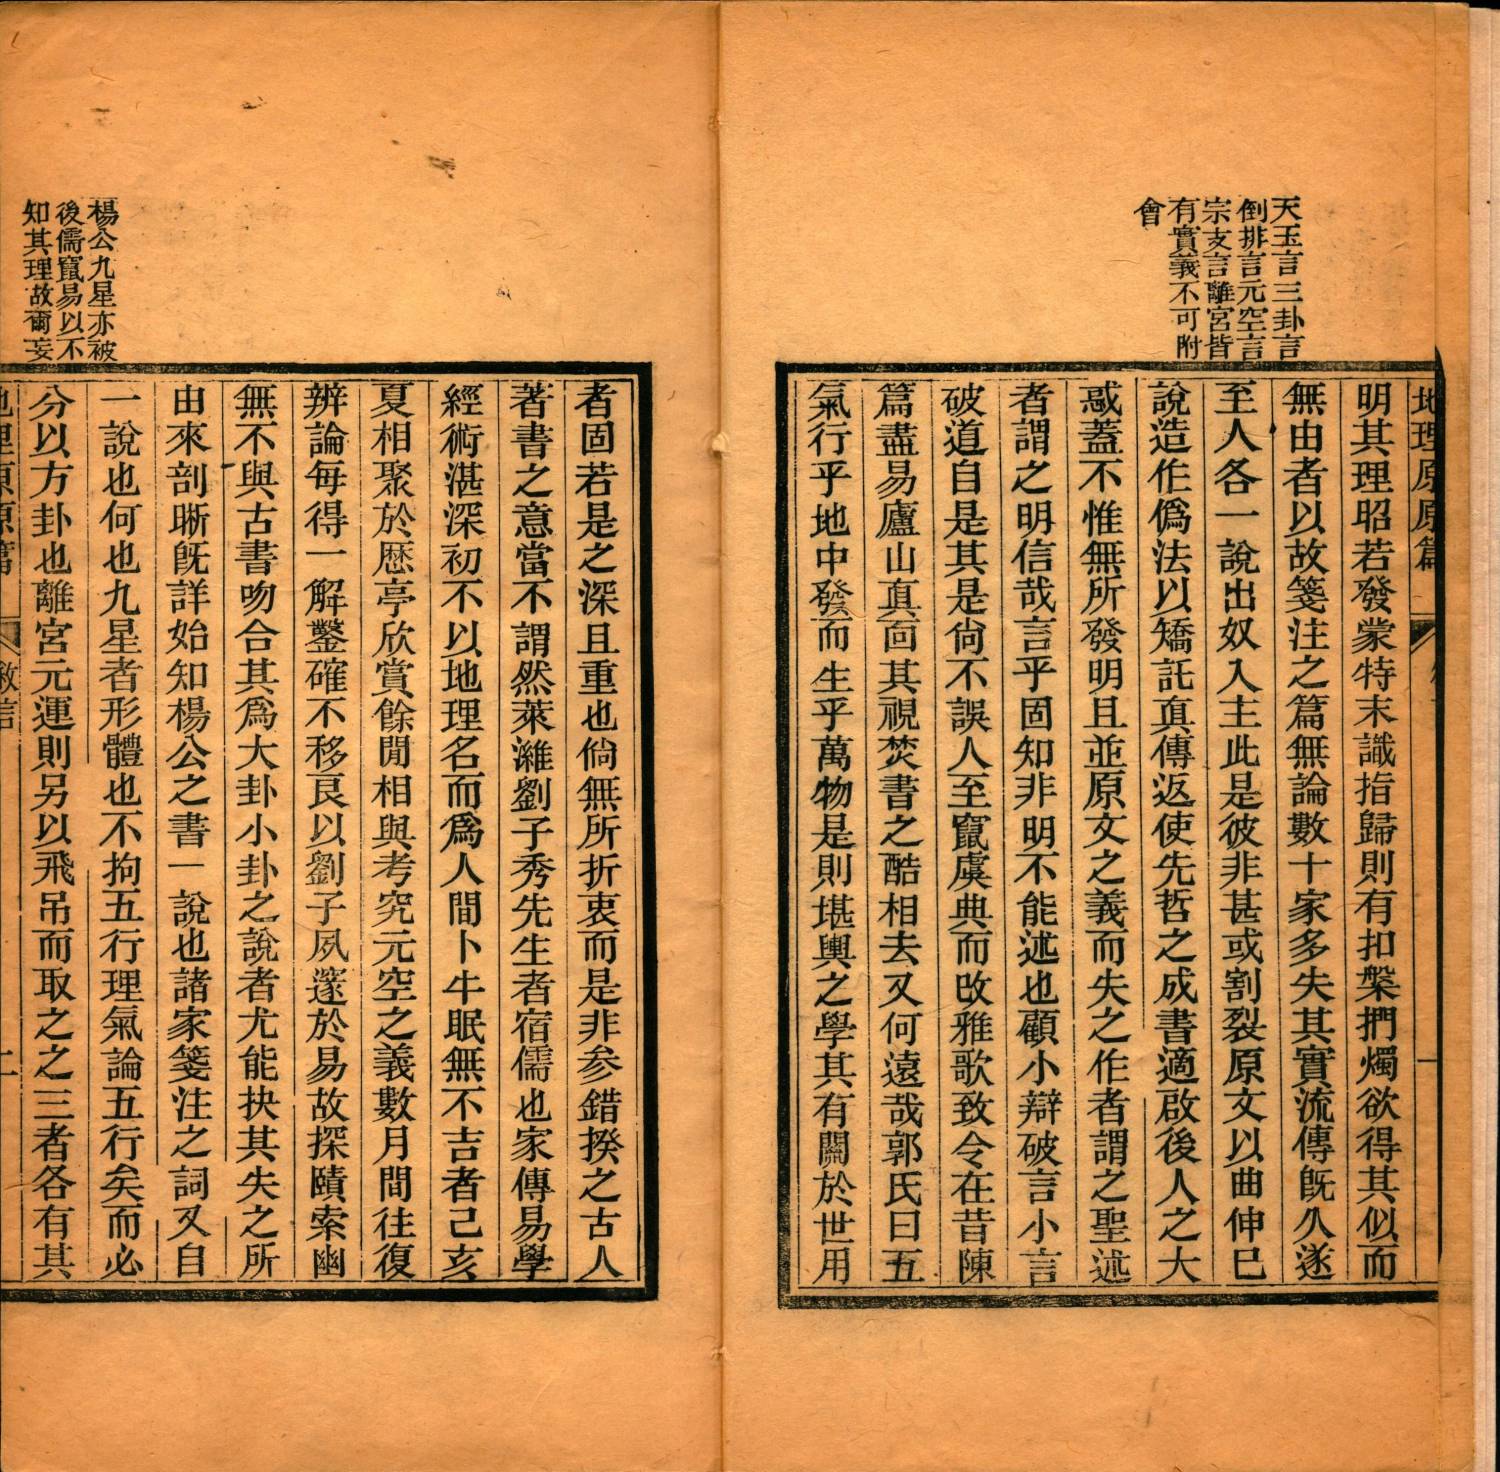 天玉言三卦言
倒排言元空言
宗支言離宮皆
有實義不可附
會
地理原原篇
一
明其理昭若發蒙特末識指歸則有扣槃捫燭欲得其似而
無由者以故箋注之篇無論數十家多失其實流傳旣久遂
至人各一說出奴入主此是彼非甚或割裂原文以曲伸巳
說造作僞法以矯託眞傳返使先哲之成書適啟後人之大
惑蓋不惟無所發明且並原文之義而失之作者謂之聖述
者謂之明信哉言乎固知非明不能述也顧小辯破言小言
破道自是其是尙不誤人至竄虞典而改雅歌致令在昔陳
篇盡易廬山眞面其視焚書之酷相去又何遠哉郭氏曰五
氣行乎地中發而生乎萬物是則堪輿之學其有關於世用
者固若是之深且重也倘無所折衷而是非參錯揆之古人
著書之意當不謂然萊濰劉子秀先生者宿儒也家傳易學
經術湛深初不以地理名而爲人間卜牛眠無不吉者己亥
夏相聚於歷亭欣賞餘閒相與考究元空之義數月間往復
辨論每得一解鑿確不移良以劉子夙邃於易故探賾索幽
無不與古書吻合其爲大卦小卦之說者尤能抉其失之所
由來剖晰旣詳始知楊公之書一說也諸家箋注之詞又自
一說也何也九星者形體也不拘五行理氣論五行矣而必
分以方卦也離宮元運則另以飛吊而取之之三者各有其
楊公九星亦被
後儒竄易以不
知其理故爾妄
地理原原篇
敘言
二